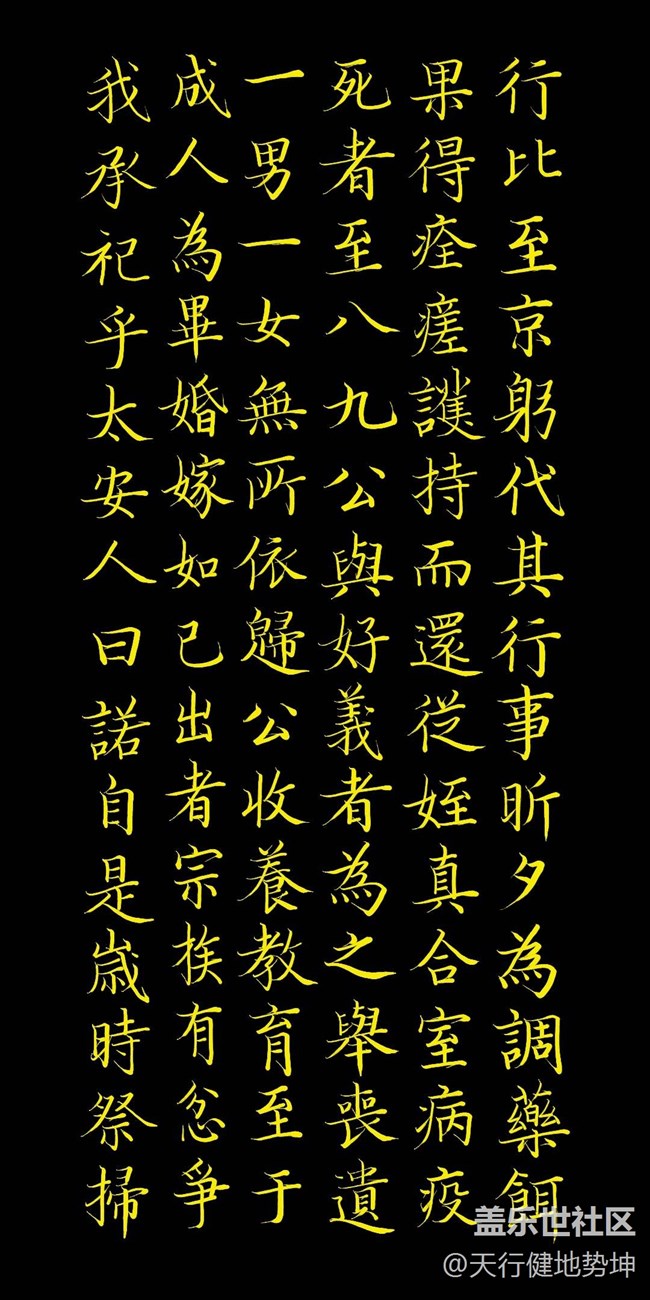 行比至京躬代其行事昕夕為調藥餌
果得痊瘥護持而還從姪真合室病疫
死者至八九公與好義者為之舉喪遺
一男一女無所依歸公收養教育至于
成人為畢婚嫁如己出者宗族有忿爭
我承祀乎太安人曰諾自是歲時祭掃
盖乐世社区
@天行健地势坤